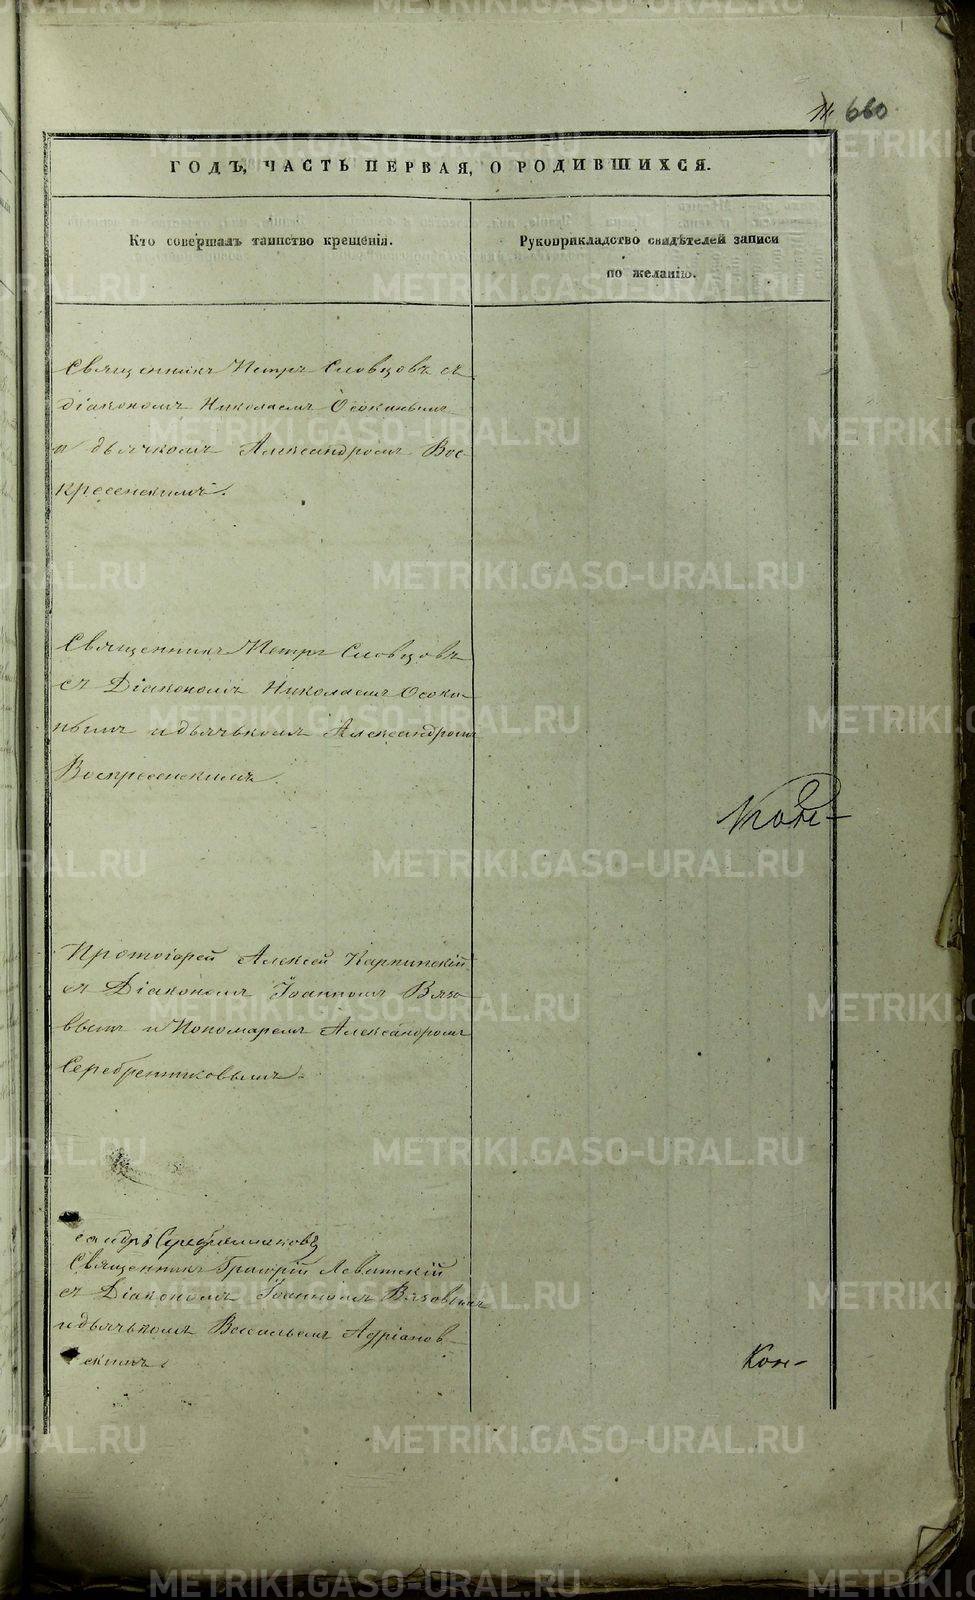 660
ГОДЪ, ЧАСТЬ ПЕРВАЯ, О РОДИВШИХСЯ.
Кто совершалъ таинство крещенія.
Рукоприкладство свидѣтелей записи
по желанію.
Священникъ Петръ Словцовъ съ
діакономъ Николаемъ Осокинымъ
и дьячкомъ Александромъ Вос-
кресенскимъ.
Священникъ Петръ Словцовъ
съ Діакономъ Николаемъ Осоки-
нымъ и дьячькомъ Александромъ
Воскресенскимъ.
Протоіерей Алексей Карпинскій
съ Діакономъ Іоанномъ Вязо-
вымъ и Пономаремъ Александромъ
Серебренниковымъ.
Священникъ Григорій Левитскій
съ Діакономъ Іоанномъ Вязовымъ
и дьячькомъ Васильемъ Адріанов-
скимъ.
METRIKI.GASO-URAL.RU